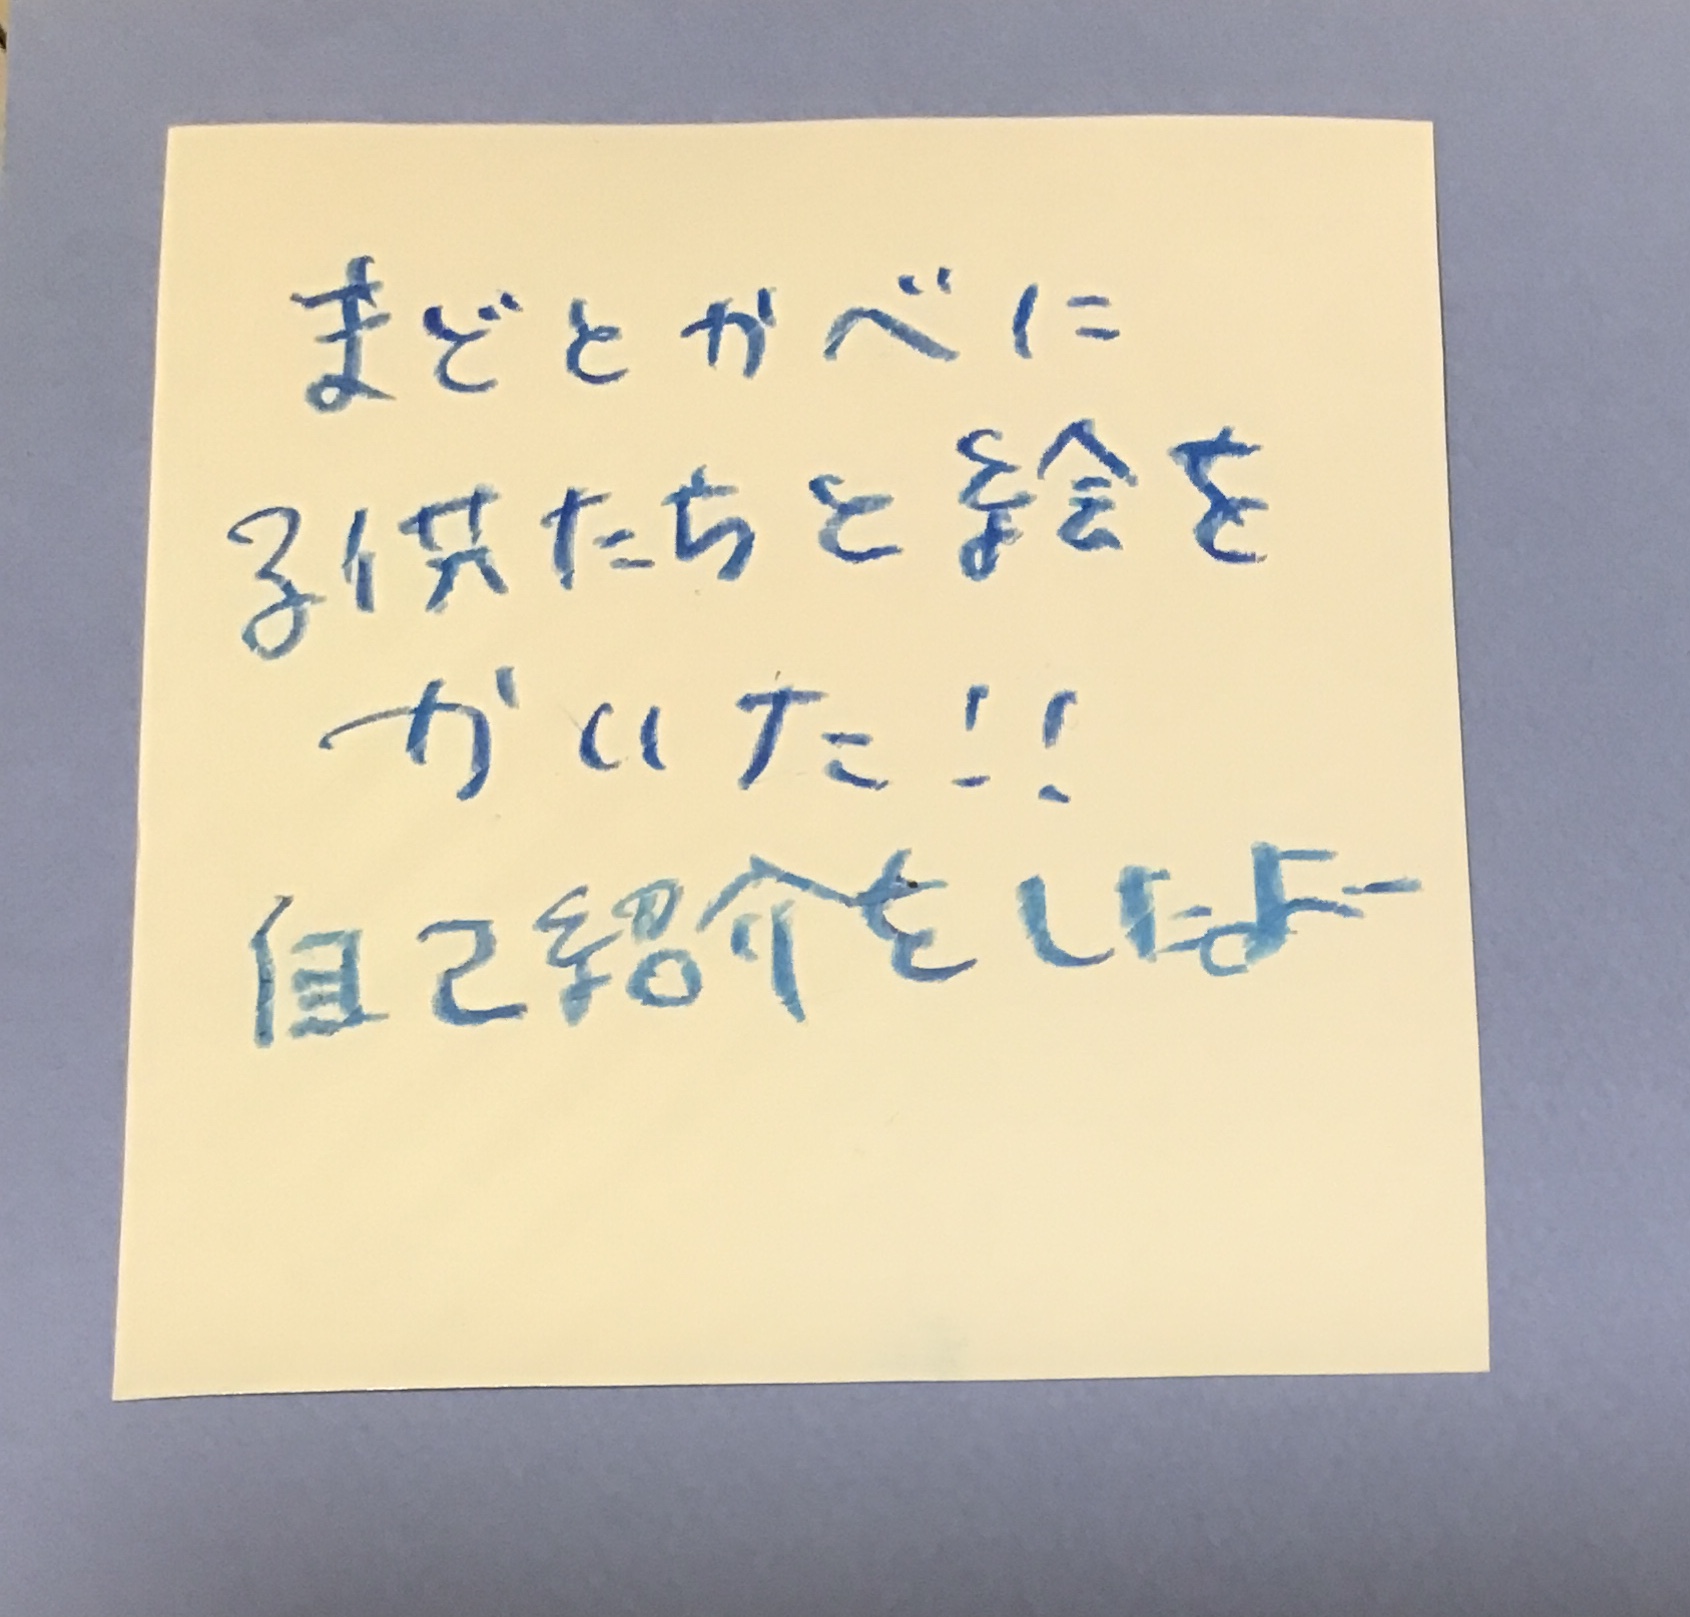 まどとかべに
子供たちと絵を
かいた!!
自己紹介をしたよー